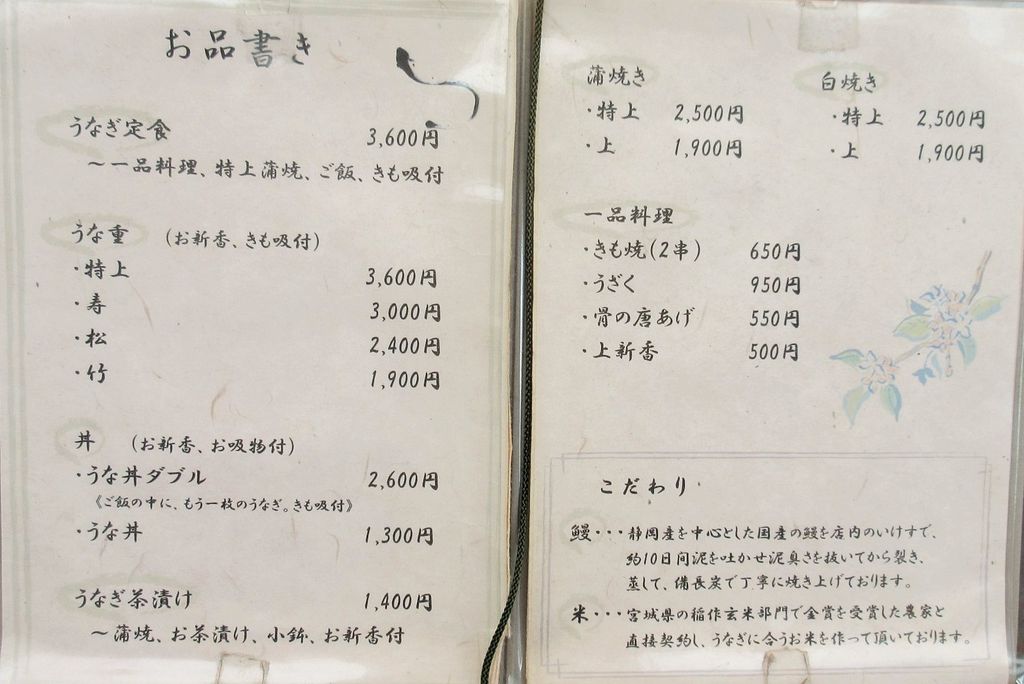 お品書き
うなぎ定食 3,600円
〜一品料理、特上蒲焼、ご飯、きも吸付
うな重 (お新香、きも吸付)
・特上 3,600円
・寿 3,000円
・松 2,400円
・竹 1,900円
丼 (お新香、お吸物付)
・うな丼ダブル 2,600円
《ご飯の中に、もう一枚のうなぎ。きも吸付》
・うな丼 1,300円
うなぎ茶漬け 1,400円
〜蒲焼、お茶漬け、小鉢、お新香付
蒲焼き
・特上 2,500円
・上 1,900円
白焼き
・特上 2,500円
・上 1,900円
一品料理
・きも焼(2串) 650円
・うざく 950円
・骨の唐あげ 550円
・上新香 500円
こだわり
鰻・・・静岡産を中心とした国産の鰻を店内のいけすで、
約10日間泥を吐かせ泥臭さを抜いてから裂き、
蒸して、備長炭で丁寧に焼き上げております。
米・・・宮城県の稲作玄米部門で金賞を受賞した農家と
直接契約し、うなぎに合うお米を作って頂いております。